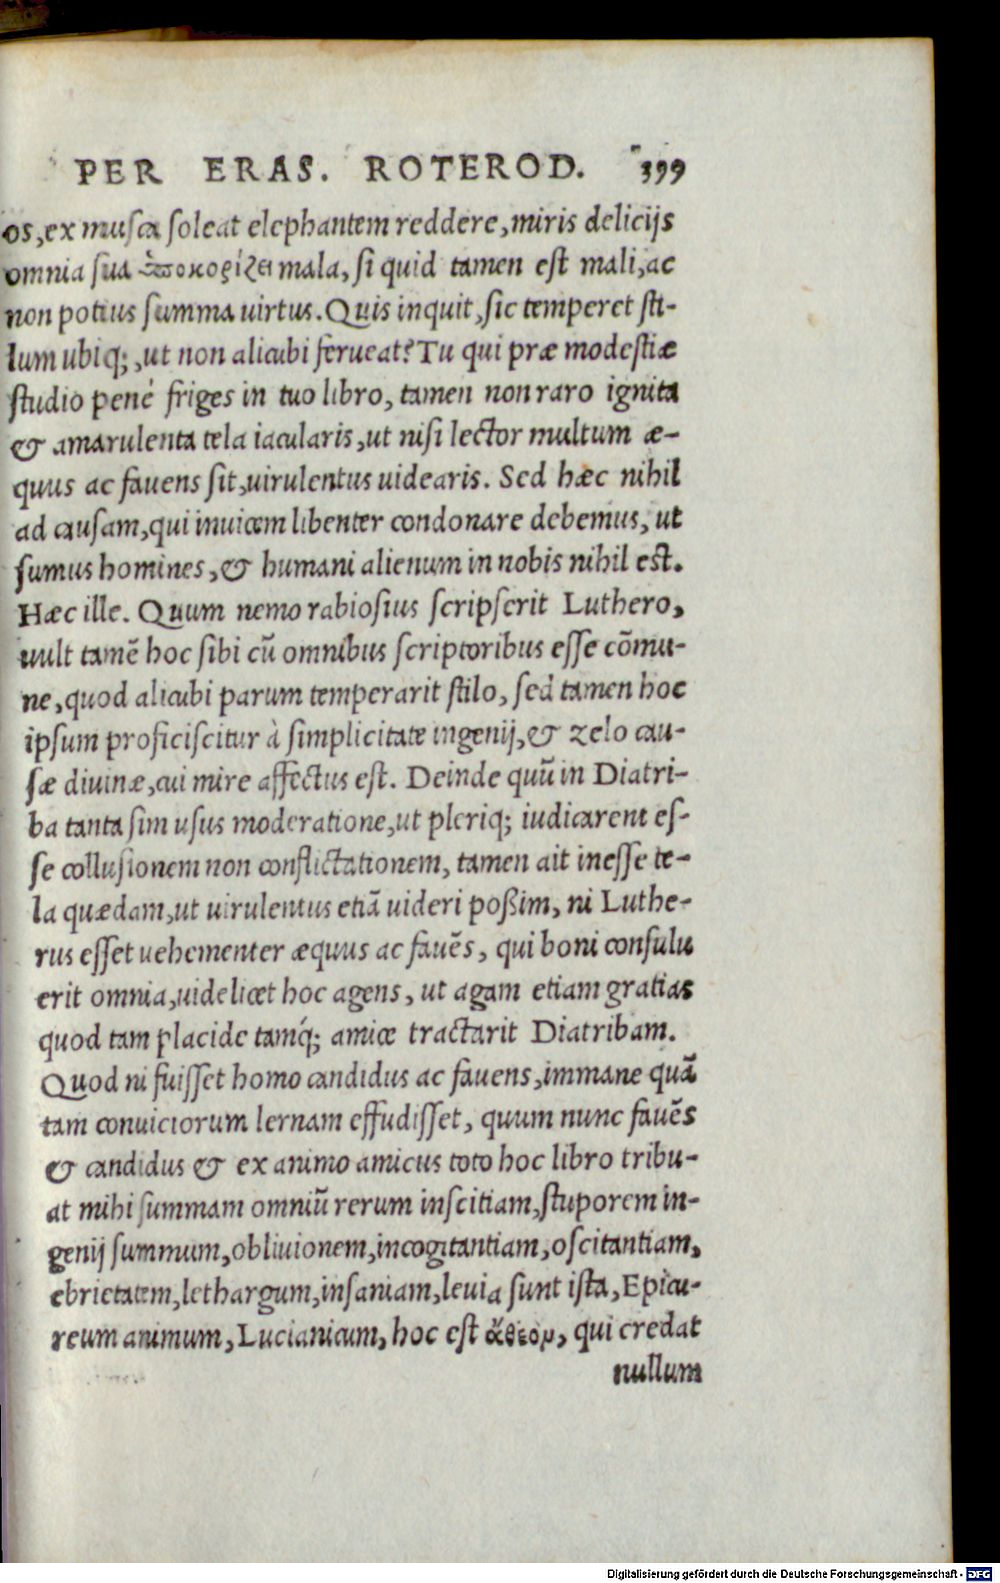 PER ERAS. ROTEROD. 399
os, ex musca soleat elephantem reddere, miris delicijs
omnia sua ὑποκορίζει mala, si quid tamen est mali, ac
non potius summa uirtus. Quis inquit, sic temperet sti-
lum ubiq;, ut non alicubi ferueat? Tu qui præ modestiæ
studio penè friges in tuo libro, tamen non raro ignita
& amarulenta tela iacularis, ut nisi lector multum æ-
quus ac fauens sit, uirulentus uidearis. Sed hæc nihil
ad causam, qui inuicem libenter condonare debemus, ut
sumus homines, & humani alienum in nobis nihil est.
Hæc ille. Quum nemo rabiosius scripserit Luthero,
uult tamẽ hoc sibi cũ omnibus scriptoribus esse cõmu-
ne, quod alicubi parum temperarit stilo, sed tamen hoc
ipsum proficiscitur à simplicitate ingenij, & zelo cau-
sæ diuinæ, cui mire affectus est. Deinde quũ in Diatri-
ba tanta sim usus moderatione, ut pleriq; iudicarent es-
se collusionem non conflictationem, tamen ait inesse te-
la quædam, ut uirulentus etiã uideri poßim, ni Luthe-
rus esset uehementer æquus ac fauẽs, qui boni consulu
erit omnia, uidelicet hoc agens, ut agam etiam gratias
quod tam placide tamq́; amice tractarit Diatribam.
Quod ni fuisset homo candidus ac fauens, immane quã
tam conuiciorum lernam effudisset, quum nunc fauẽs
& candidus & ex animo amicus toto hoc libro tribu-
at mihi summam omniũ rerum inscitiam, stuporem in-
genij summum, obliuionem, incogitantiam, oscitantiam,
ebrietatem, lethargum, insaniam, leuia sunt ista, Epicu-
reum animum, Lucianicum, hoc est ἄθεον, qui credat
nullum
Digitalisierung gefördert durch die Deutsche Forschungsgemeinschaft - DFG